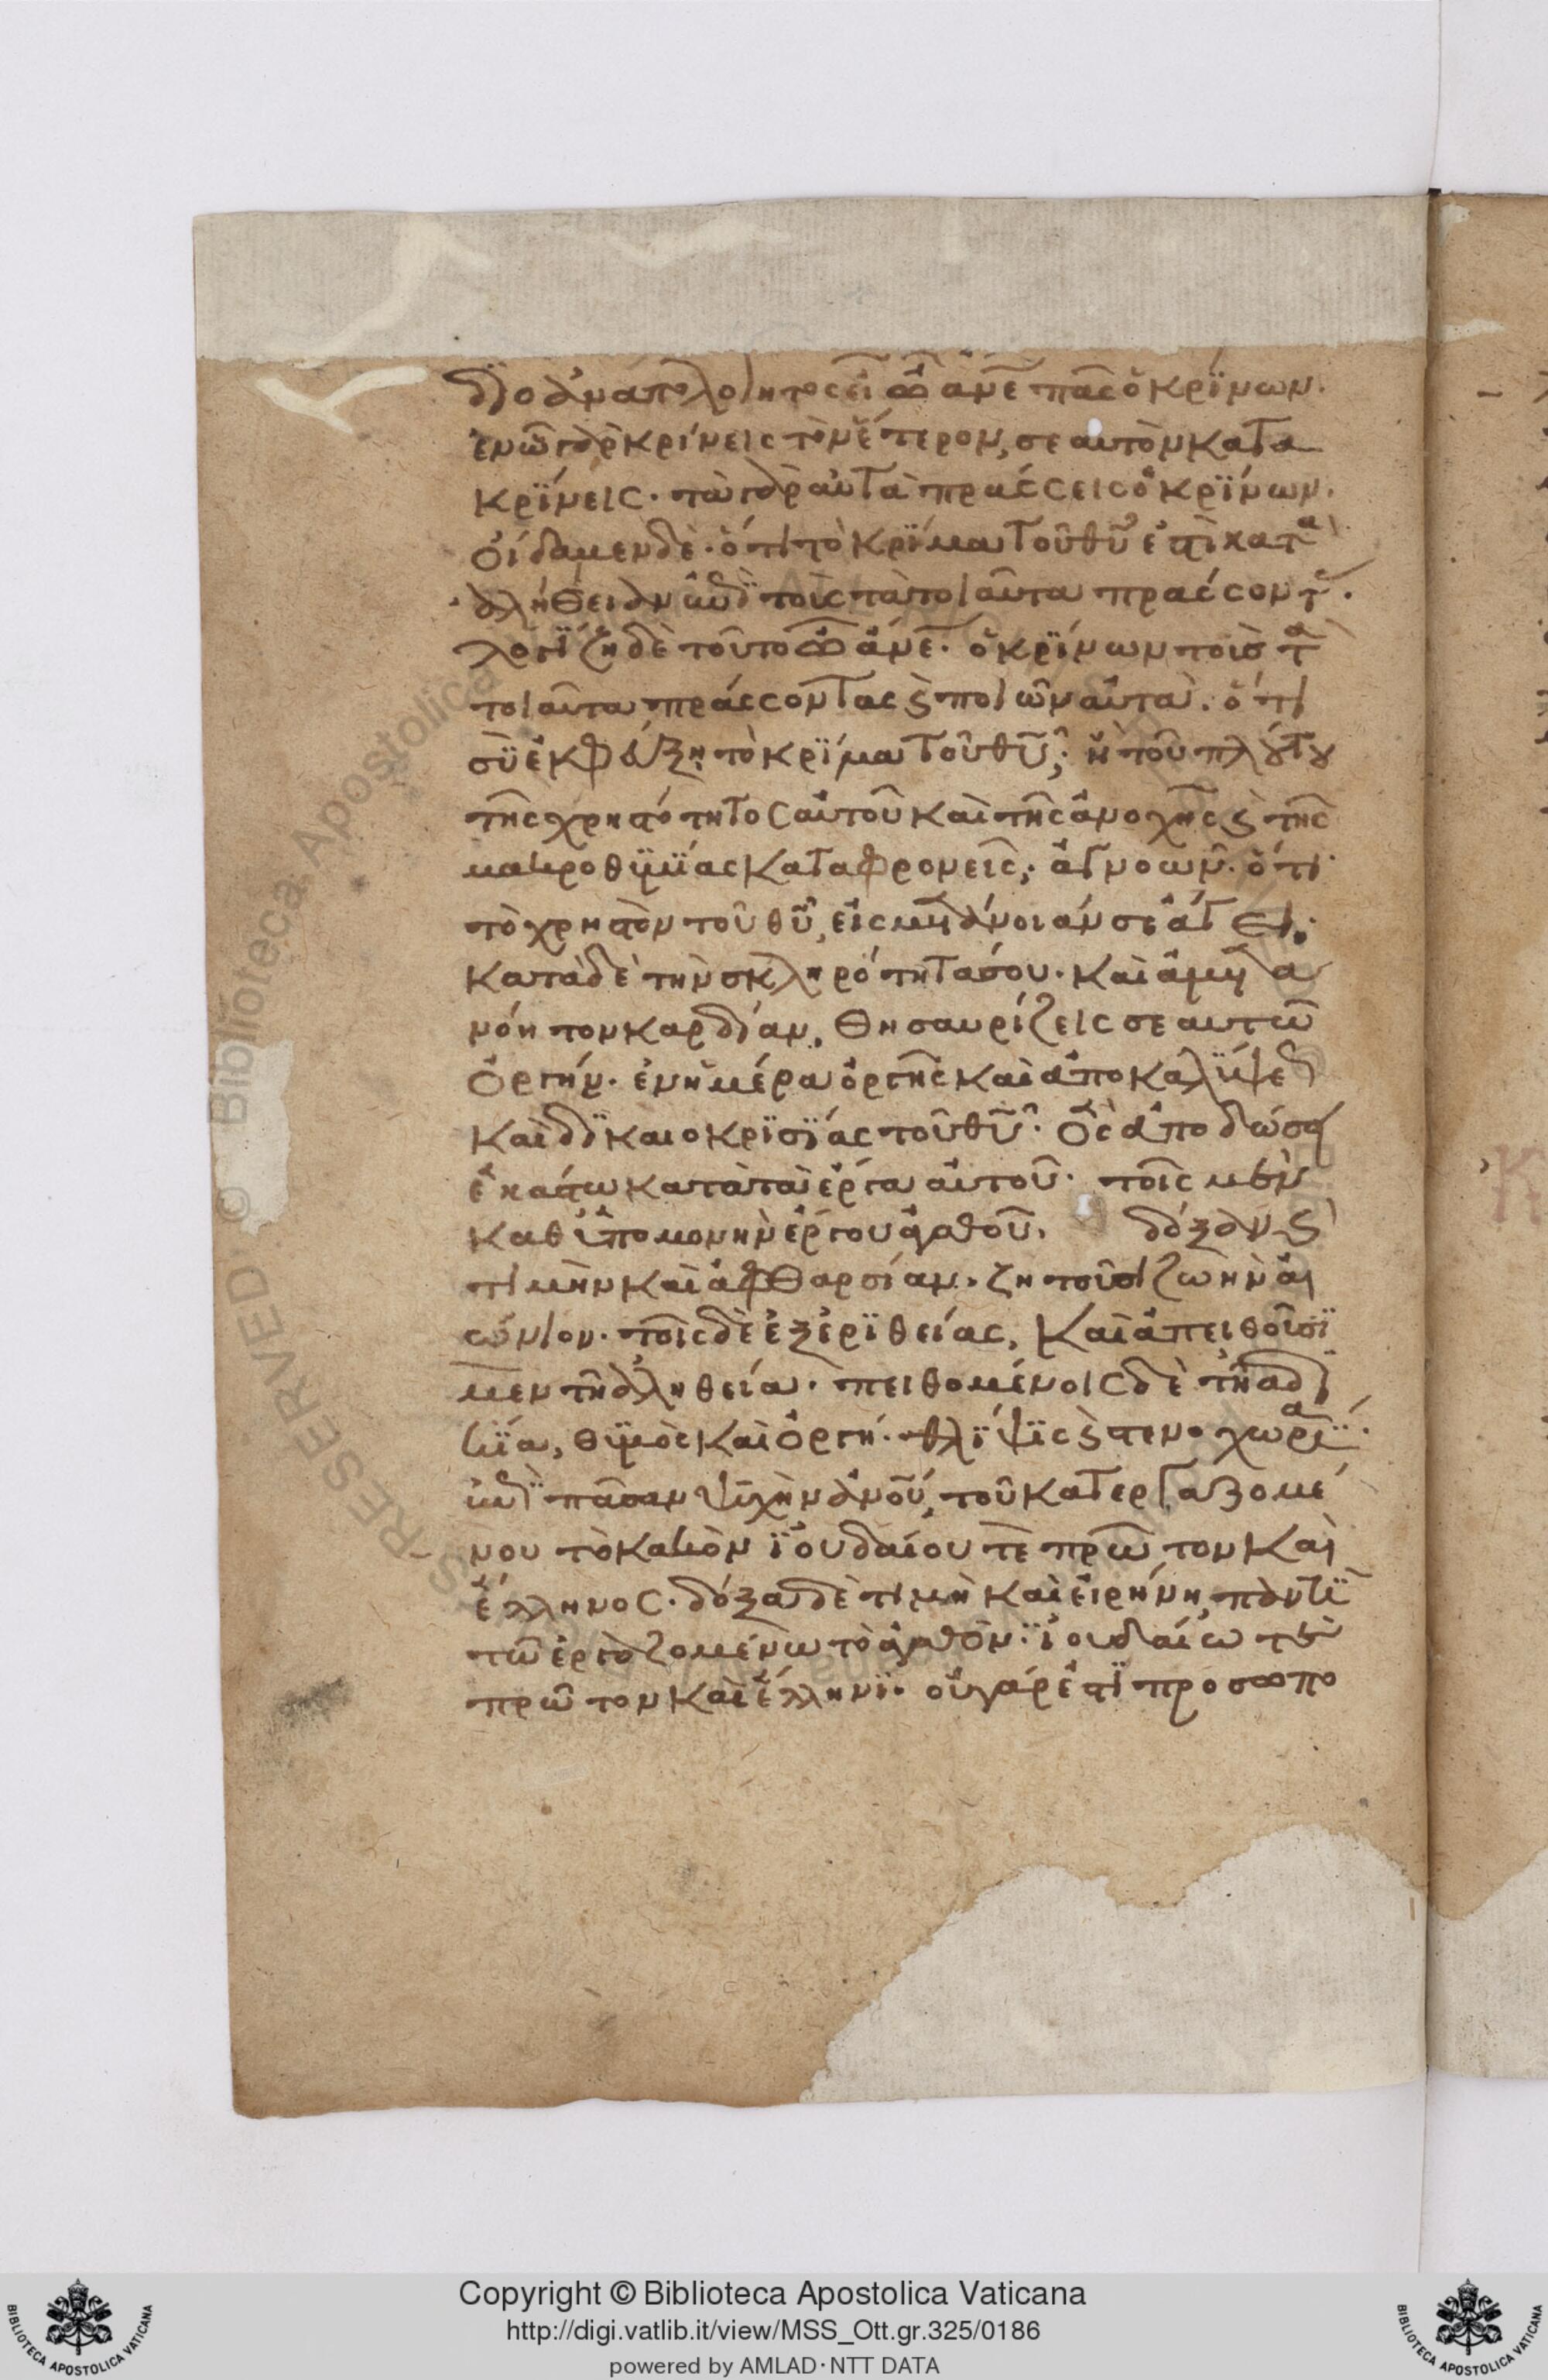 διὸ ἀναπολόγητος εἶ ὦ ἄνε πᾶς ὁ κρίνων.
ἐν ᾧ γὰρ κρίνεις τὸν ἕτερον, σεαυτὸν κατα
κρίνεις. τὰ γὰρ αὐτὰ πράσσεις ὁ κρίνων.
οἴδαμεν δὲ. ὅτι τὸ κρίμα τοῦ θῦ ἐστὶ κατὰ
ἀλήθειαν ἐπὶ τοὺς τὰ τοιαῦτα πράσσοντ.
λογίζη δὲ τοῦτο ὦ ἄνε. ὁ κρίνων τοὺς τὰ
τοιαῦτα πράσσοντας ϗ ποιῶν αὐτὰ. ὅτι
σὺ ἐκφεύξη τὸ κρίμα τοῦ θῦ; ἢ τοῦ πλούτου
τῆς χρηστότητος αὐτοῦ καὶ τῆς ἀνοχῆς ϗ τῆς
μακροθυμίας καταφρονεῖς; ἀγνοῶν. ὅτι
τὸ χρηστὸν τοῦ θῦ, εἰς μετάνοιάν σε ἄγει.
κατὰ δὲ τὴν σκληρότητά σου. καὶ ἀμετα
νόητον καρδίαν, θησαυρίζεις σεαυτῶ
ὀργήν. ἐν ἡμέρα ὀργῆς καὶ ἀποκαλύψε
καὶ δικαιοκρισίας τοῦ θῦ. ὃς ἀποδώσει
ἑκάστω κατὰ τὰ ἔργα αὐτοῦ. τοῖς μὲν
καθ ὑπομονὴν ἔργου ἀγαθοῦ. δόξαν ϗ
τιμὴν καὶ ἀφθαρσίαν. ζητοῦσι ζωὴν αἰ
ώνιον. τοῖς δὲ ἐξ ἐριθείας, καὶ ἀπειθοῦσι
μὲν τῆ ἀληθεία. πειθομένοις δὲ τῆ ἀδι
κία, θυμὸς καὶ ὀργή. θλίψις ϗ στενοχωρία.
ἐπὶ πᾶσαν ψυχὴν ἀνοῦ, τοῦ κατεργαζομέ
νου τὸ κακὸν ἰουδαίου τε πρῶτον καὶ
ἕλληνος. δόξα δὲ τιμὴ καὶ εἰρήνη, παντὶ
τῶ ἐργαζομένω τὸ ἀγαθόν. ἰουδαίω τε
πρῶτον καὶ ἕλληνι. οὐ γάρ ἐστι προσωπο
Copyright © Biblioteca Apostolica Vaticana
http://digi.vatlib.it/view/MSS_Ott.gr.325/0186
powered by AMLAD·NTT DATA
BIBLIOTECA APOSTOLICA VATICANA
BIBLIOTECA APOSTOLICA VATICANA